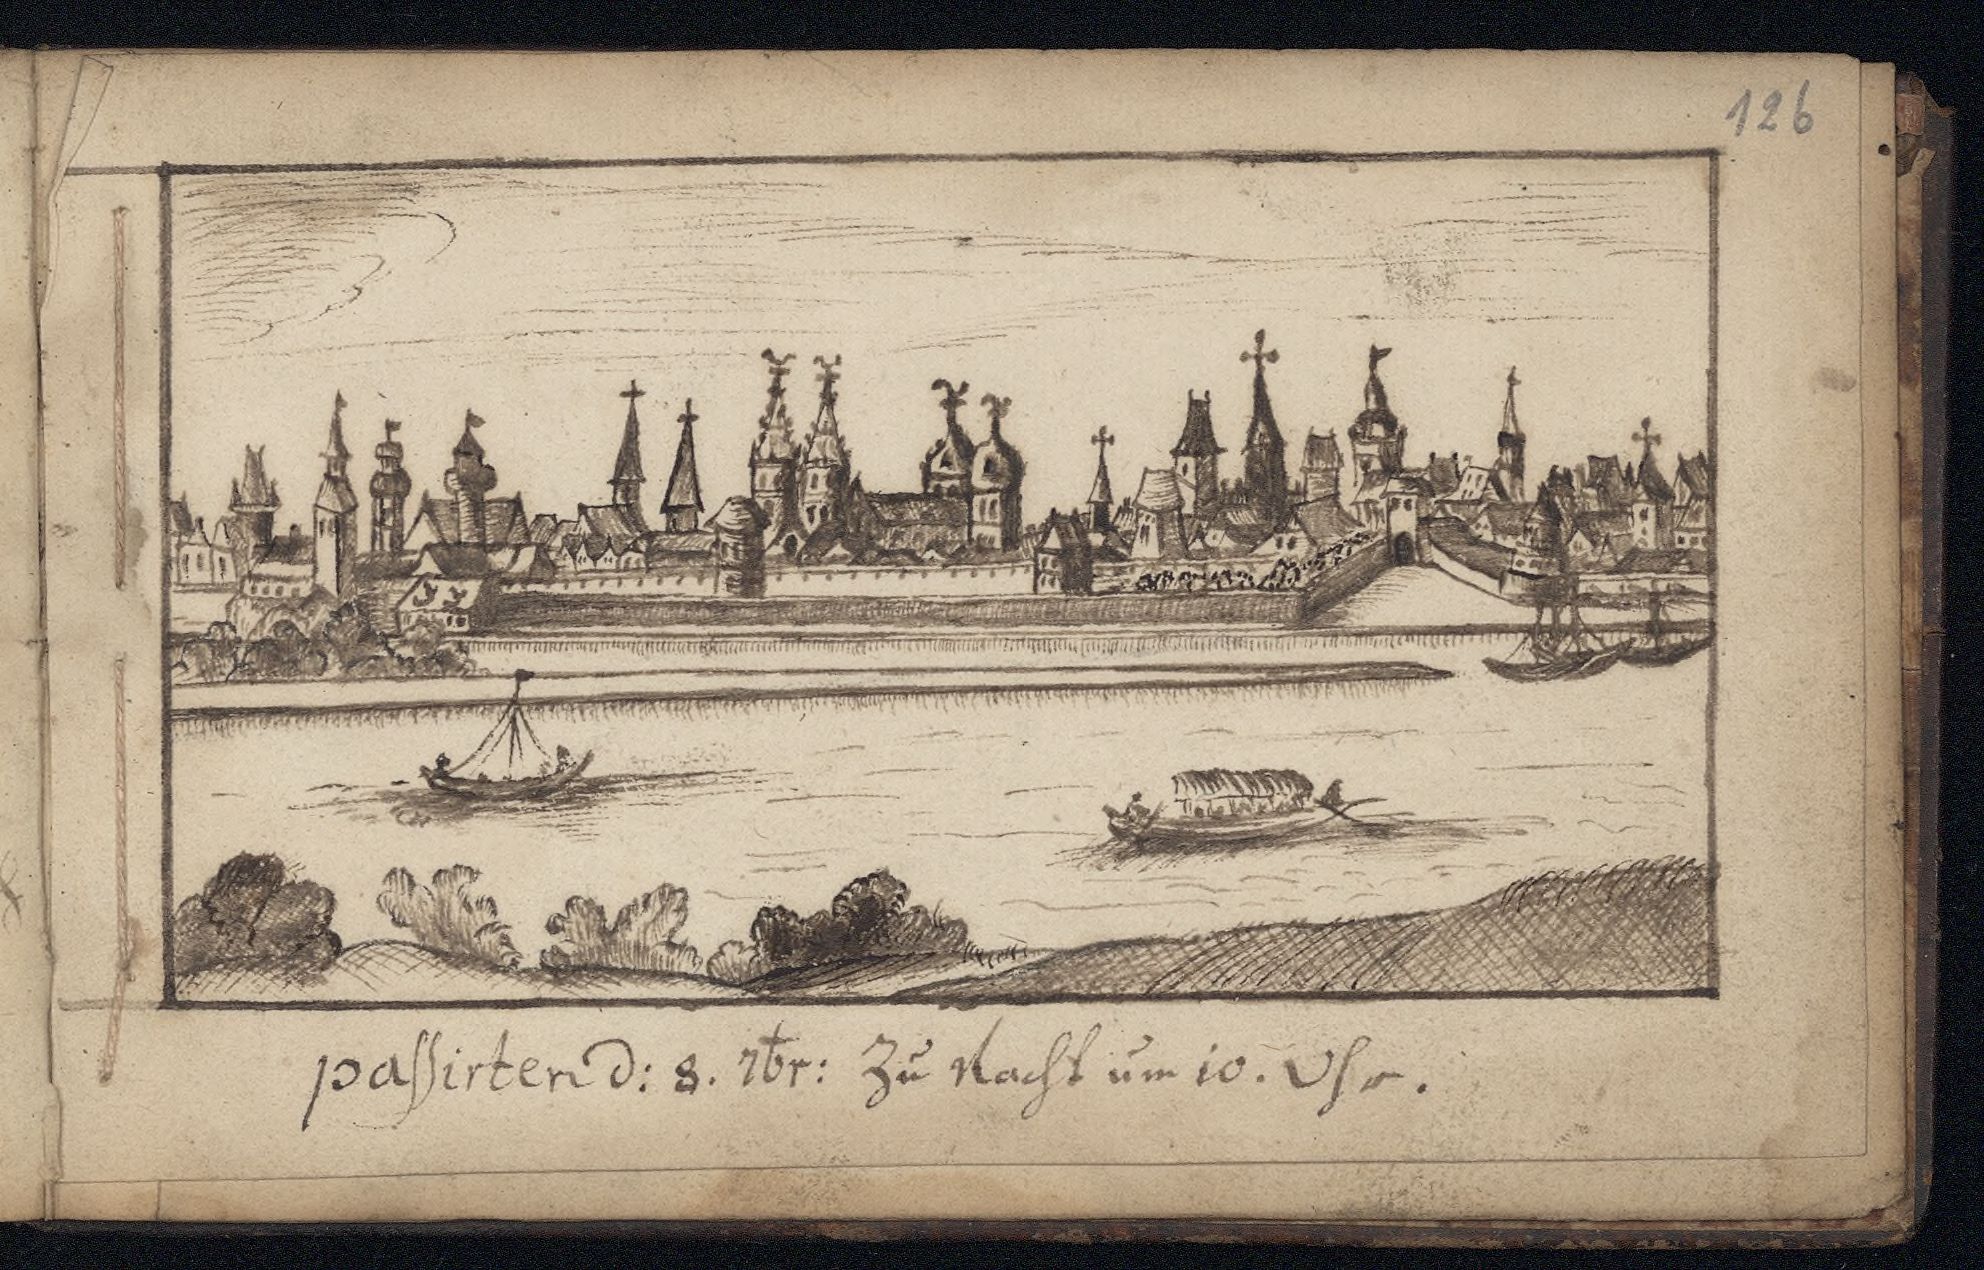 126
passirten d: 8. 7br: Zu Nacht um 10. Uhr.